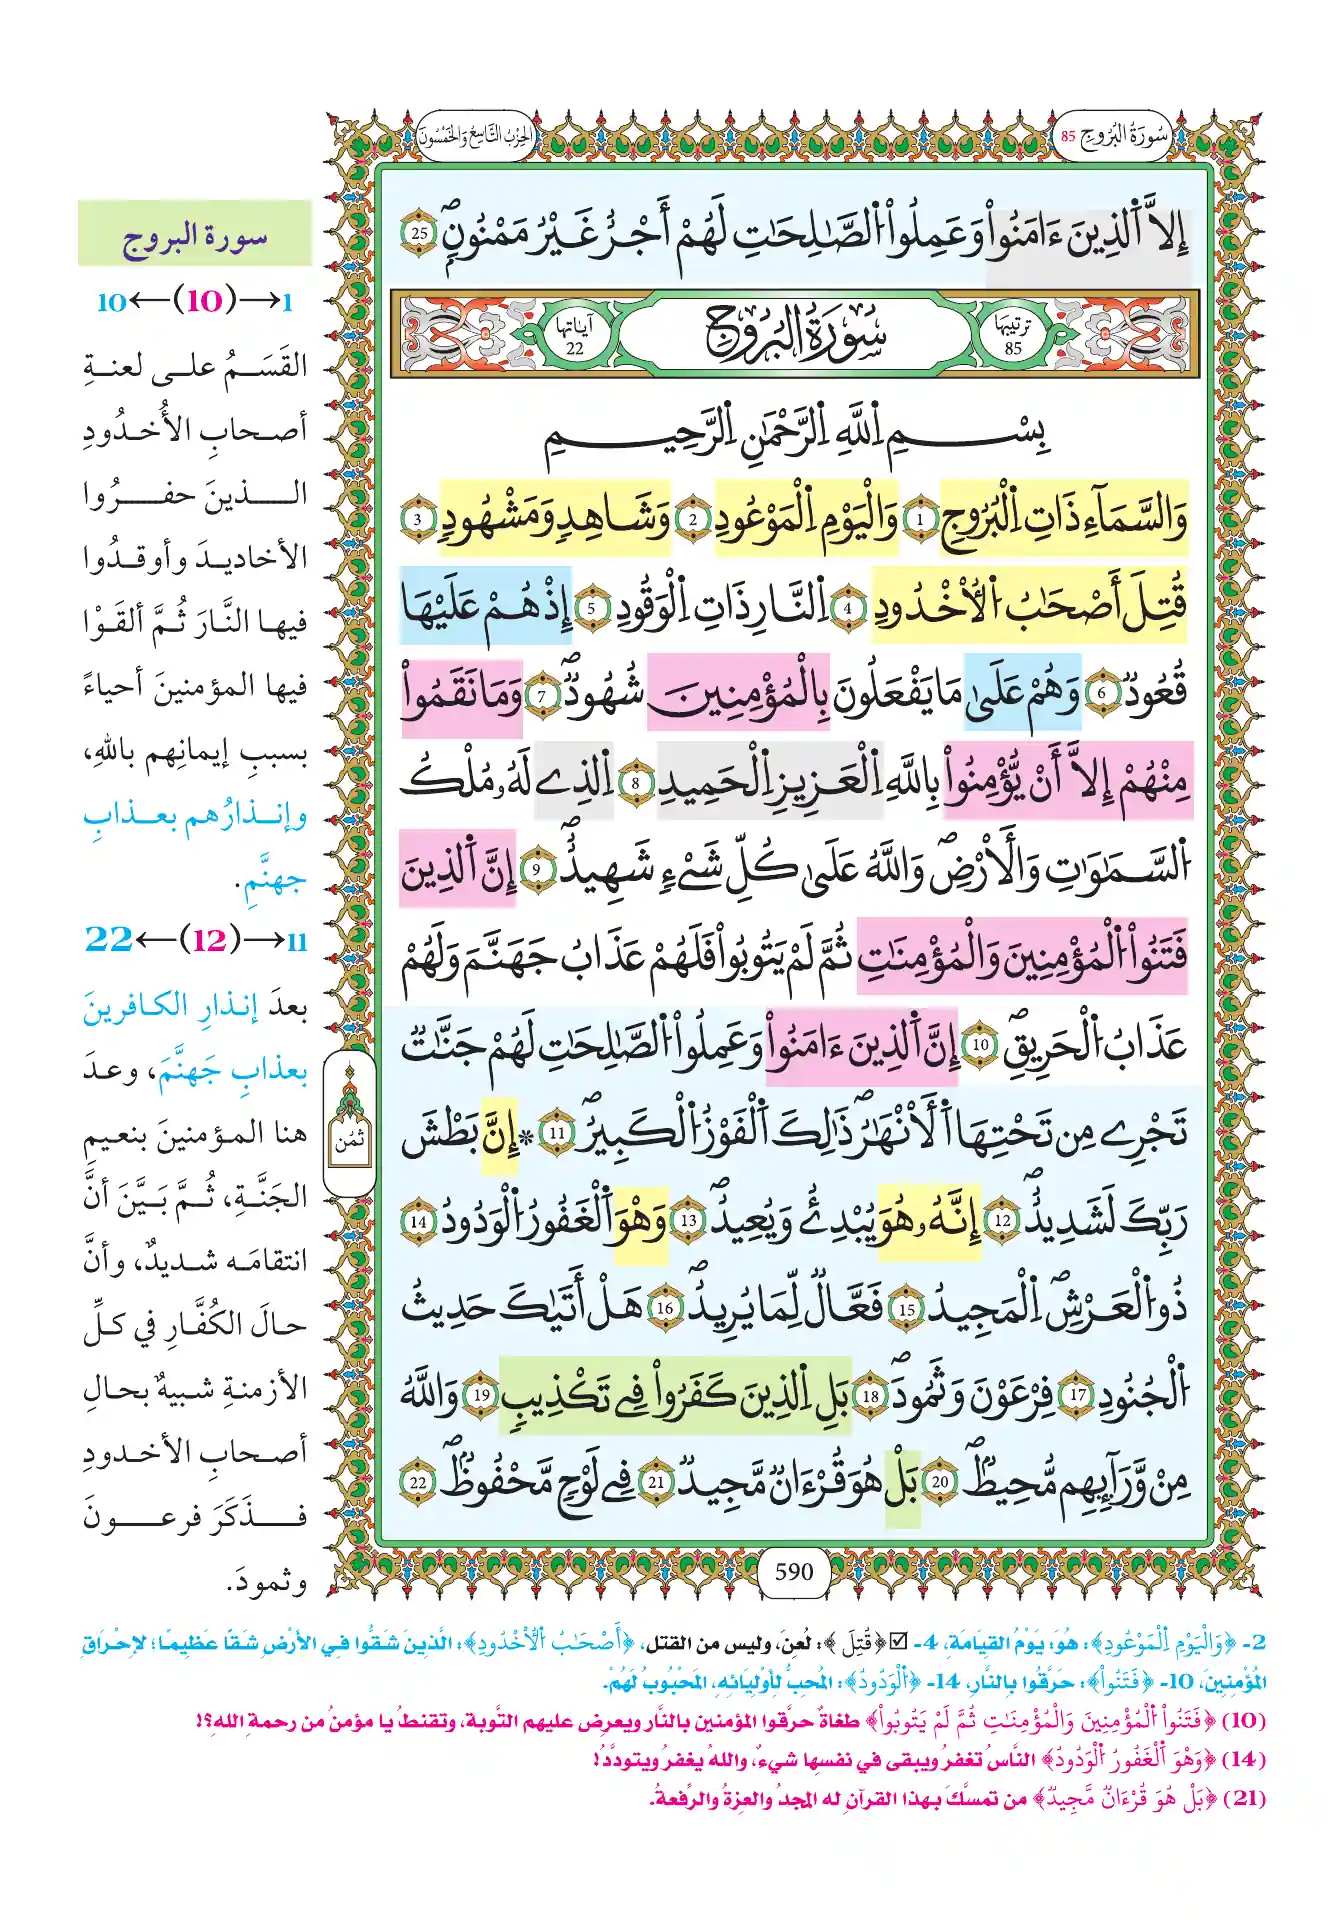 سُورَةُ البُرُوجِ 85
الحِزْبُ التَّاسِعُ وَالخَمْسُونَ
إِلاَّ اَ۬لذِينَ ءَامَنُواْ وَعَمِلُواْ اُ۬لصَّٰلِحَٰتِ لَهُمُۥٓ أَجْرٌ غَيْرُ مَمْنُونٍۖ 25
ترتيبها 85
سُورَةُ البُرُوجِ
آياتها 22
بِسْمِ اِ۬للَّهِ اِ۬لرَّحْمَٰنِ اِ۬لرَّحِيمِ
وَالسَّمَآءِ ذَاتِ اِ۬لْبُرُوجِ 1 وَالْيَوْمِ اِ۬لْمَوْعُودِ 2 وَشَاهِدٖ وَمَشْهُودٖ 3
قُتِلَ أَصْحَٰبُ اُ۬لُاخْدُودِ 4 اِ۬لنَّارِ ذَاتِ اِ۬لْوَقُودِ 5 إِذْ هُمْ عَلَيْهَا
قُعُودٞ 6 وَهُمْ عَلَىٰ مَا يَفْعَلُونَ بِالْمُؤْمِنِينَ شُهُودٞۖ 7 وَمَا نَقَمُواْ
مِنْهُمْ إِلاَّ أَنْ يُّؤْمِنُواْ بِاللَّهِ اِ۬لْعَزِيزِ اِ۬لْحَمِيدِ 8 اِ۬لذِے لَهُۥ مُلْكُ
اُ۬لسَّمَٰوَٰتِ وَالَارْضِۖ وَاللَّهُ عَلَىٰ كُلِّ شَےْءٖ شَهِيدٌۖ 9 إِنَّ اَ۬لذِينَ
فَتَنُواْ اُ۬لْمُؤْمِنِينَ وَالْمُؤْمِنَٰتِ ثُمَّ لَمْ يَتُوبُواْ فَلَهُمْ عَذَابُ جَهَنَّمَ وَلَهُمْ
عَذَابُ اُ۬لْحَرِيقِۖ 10 إِنَّ اَ۬لذِينَ ءَامَنُواْ وَعَمِلُواْ اُ۬لصَّٰلِحَٰتِ لَهُمْ جَنَّٰتٞ
تَجْرِے مِن تَحْتِهَا اَ۬لَانْهَٰرُۖ ذَٰلِكَ اَ۬لْفَوْزُ اُ۬لْكَبِيرُۖ 11 * إِنَّ بَطْشَ
رَبِّكَ لَشَدِيدٌۖ 12 إِنَّهُۥ هُوَ يُبْدِئُ وَيُعِيدُۖ 13 وَهْوَ اَ۬لْغَفُورُ اُ۬لْوَدُودُ 14
ذُو اُ۬لْعَرْشِ اِ۬لْمَجِيدُ 15 فَعَّالٞ لِّمَا يُرِيدُۖ 16 هَلْ أَتَىٰكَ حَدِيثُ
اُ۬لْجُنُودِ 17 فِرْعَوْنَ وَثَمُودَۖ 18 بَلِ اِ۬لذِينَ كَفَرُواْ فِے تَكْذِيبٖ 19 وَاللَّهُ
مِنْ وَّرَآئِهِم مُّحِيطٌۖ 20 بَلْ هُوَ قُرْءَانٞ مَّجِيدٞ 21 فِے لَوْحٖ مَّحْفُوظٌۖ 22
ثمن
590
سورة البروج
1→(10)←10
القَسَمُ على لعنةِ
أصحابِ الأُخدُودِ
الذينَ حفرُوا
الأخاديدَ وأوقدُوا
فيها النَّارَ ثُمَّ ألقَوْا
فيها المؤمنينَ أحياءً
بسببِ إيمانِهم باللهِ،
وإنذارُهم بعذابِ
جهنَّمِ.
11→(12)←22
بعدَ إنذارِ الكافرينَ
بعذابِ جَهنَّمَ، وعدَ
هنا المؤمنينَ بنعيمِ
الجَنَّةِ، ثُمَّ بَيَّنَ أنَّ
انتقامَه شديدٌ، وأنَّ
حالَ الكُفَّارِ في كلِّ
الأزمنةِ شبيهٌ بحالِ
أصحابِ الأخدودِ
فذَكَرَ فرعونَ
وثمودَ.
2- ﴿وَالْيَوْمِ اِ۬لْمَوْعُودِ﴾: هُوَ: يَوْمُ القِيَامَةِ، 4- ☑ ﴿قُتِلَ﴾: لُعِنَ، وليس من القتل، ﴿أَصْحَٰبُ اُ۬لُاخْدُودِ﴾: الَّذِينَ شَقُّوا فِي الأَرْضِ شَقًّا عَظِيمًا؛ لِإِحْرَاقِ
المُؤْمِنِينَ، 10- ﴿فَتَنُواْ﴾: حَرَّقُوا بِالنَّارِ، 14- ﴿اَ۬لْوَدُودُ﴾: المُحِبُّ لِأَوْلِيَائِهِ، المَحْبُوبُ لَهُمْ.
(10) ﴿فَتَنُواْ اُ۬لْمُؤْمِنِينَ وَالْمُؤْمِنَٰتِ ثُمَّ لَمْ يَتُوبُواْ﴾ طغاةٌ حرَّقوا المؤمنين بالنَّار ويعرِض عليهم التَّوبة، وتقنطُ يا مؤمنُ من رحمةِ اللهِ؟!
(14) ﴿وَهْوَ اَ۬لْغَفُورُ اُ۬لْوَدُودُ﴾ النَّاسُ تغفرُ ويبقى في نفسِها شيءٌ، واللهُ يغفرُ ويتودَّدُ!
(21) ﴿بَلْ هُوَ قُرْءَانٞ مَّجِيدٞ﴾ من تمسَّكَ بهذا القرآنِ له المجدُ والعزةُ والرِّفعةُ.